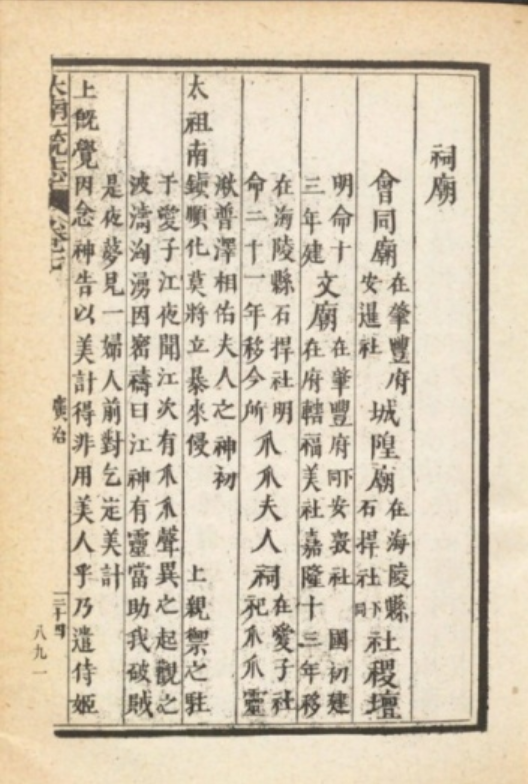 祠廟
會同廟
在肇豐府
安暹社
城隍廟
在海陵縣
石捍社
下同
社稷壇
明命十
三年建
文廟
在肇豐府下同安袞社 國初建
在府轄福美社嘉隆十三年移
在海陵縣石捍社明
命二十一年移今所
爪爪夫人祠
在愛子社
祀爪爪靈
湫普澤相佑夫人之神初
太祖南鎮順化莫將立暴來侵 上親禦之駐
于愛子江夜聞江次有爪爪聲異之起觀之
波濤洶湧因密禱曰江神有靈當助我破賊
是夜夢見一婦人前對乞定美計
上既覺因念神告以美計得非用美人乎乃遣侍姬
大南一統志 卷之七 廣治 三十四
八九一